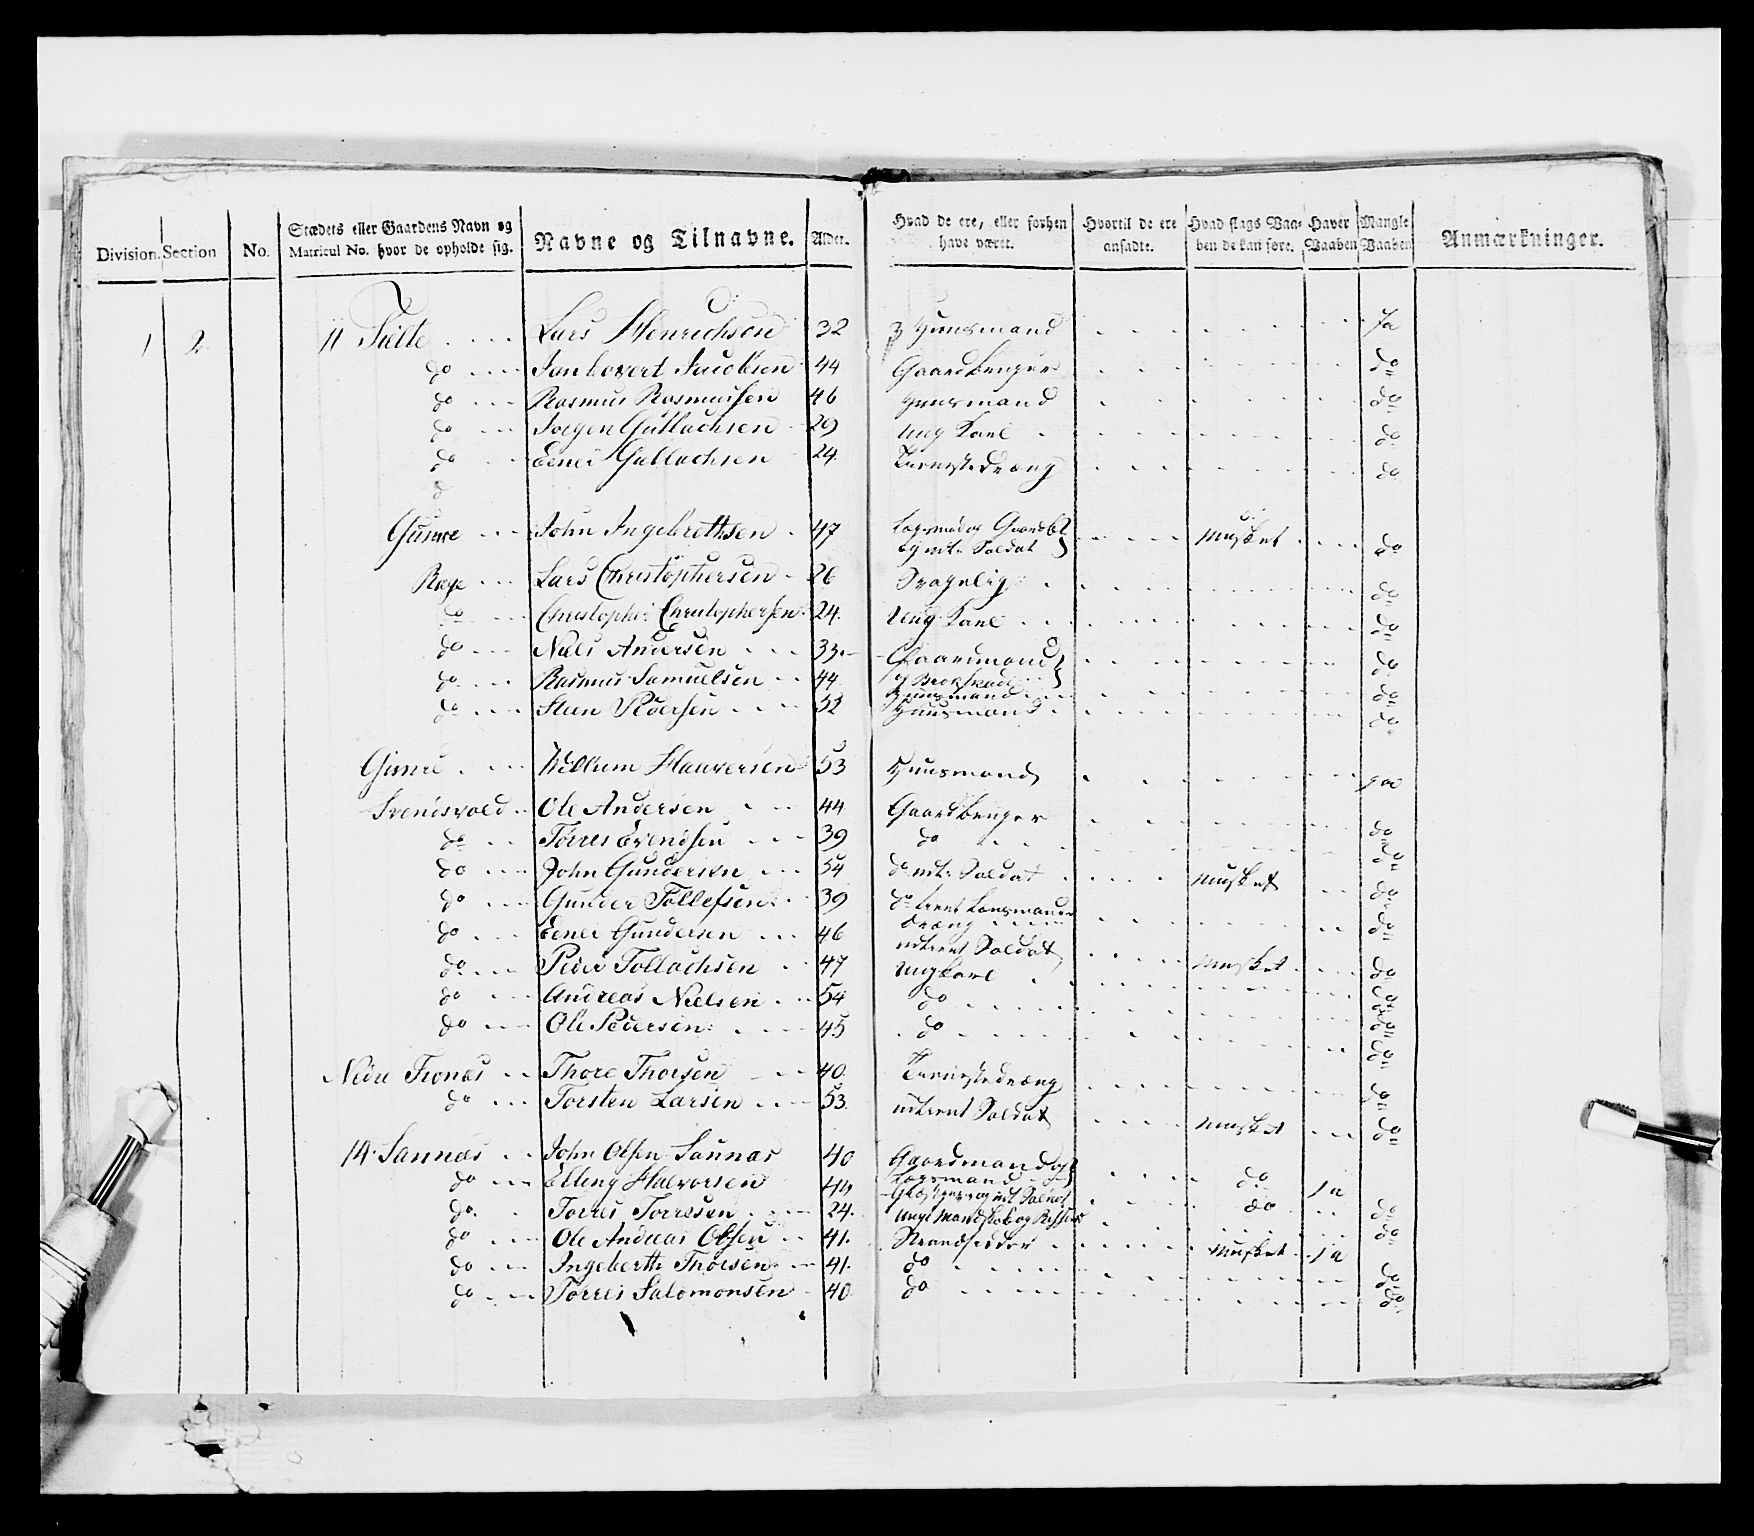 Division. Section No. Stædets eller Gaardens Navn og Matricul No. hvor de opholde sig. Navne og Tilnavne. Alder. Hvad de ere, eller forhen have været. Hvortil de ere ansadte. Hvad slags Vaaben de kan føre. Haver Vaaben Mangle Vaaben Anmærkninger.
1 2 11 Lars Henrichsen 32 Huusmand Ja
do Jacobsen 44 Gaardbruger do
do Rasmus Rasmusen 46 Huusmand do
do Joegen Gullachsen 29 Ung Karl do
do Gullachsen 24 Tienistedræng do
John Ingebrethsen 47 Soldat Musket do
Ræge Lars Christophersen 26 do
do Christopher Christophersen 24 Ung Karl do
do Niels Andersen 33 Gaardmand do
do Rasmus Samuelsen 44 Huusmand do
do Steen Pedersen 52 Huusmand do
53 Huusmand Ja
Svendsvold Ole Andersen 44 Gaardbruger do
do Torres Svendsen 39 do do
do John Gundersen 54 do udt. Soldat Musket do
do Gunder Tollefsen 39 do Lensmands dræng do
do Gundersen 46 udtient Soldat Musket do
do Peder Tollachsen 47 Ungkarl do
do Andreas Nielsen 54 do do
do Ole Pedersen 45 do do
Nedre Thore Thorsen 40 Tienistedræng do
do Torsten Larsen 53 udtient Soldat Musket do
14 Sannæs John Olsen Sannæs 40 Gaardmand og Laxmand do Ja
do Elling Halvorsen 44 udt Soldat do do
do Torres Torresen 24 do
do Ole Andreas Olsen 41 Strandsidder Musket Ja
do Ingeberth Thorsen 41 do do
do Torres Salomonsen 40 do do